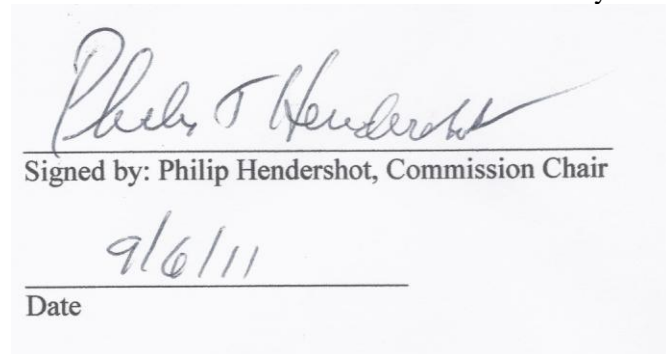 Philip T Hendershot
Signed by: Philip Hendershot, Commission Chair
9/6/11
Date